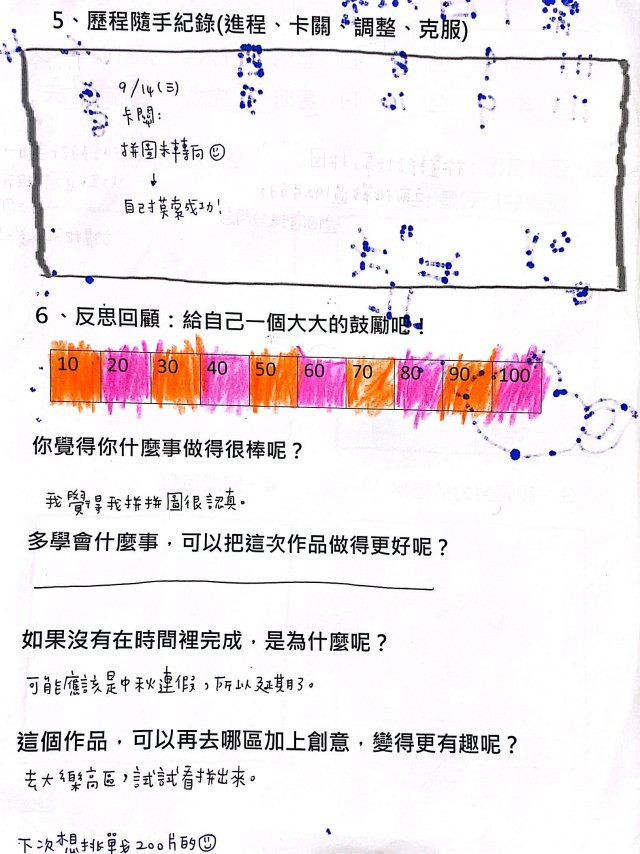 5、歷程隨手紀錄(進程、卡關、調整、克服)
9/14(三)
卡關:
拼圖未轉向☺
↓
自己摸索成功!
6、反思回顧：給自己一個大大的鼓勵吧！
10 20 30 40 50 60 70 80 90 100
你覺得你什麼事做得很棒呢？
我覺得我拼拼圖很認真。
多學會什麼事，可以把這次作品做得更好呢？
如果沒有在時間裡完成，是為什麼呢？
可能應該是中秋連假，所以延期了。
這個作品，可以再去哪區加上創意，變得更有趣呢？
去大樂高區，試試看拼出來。
下次想挑戰200片的☺